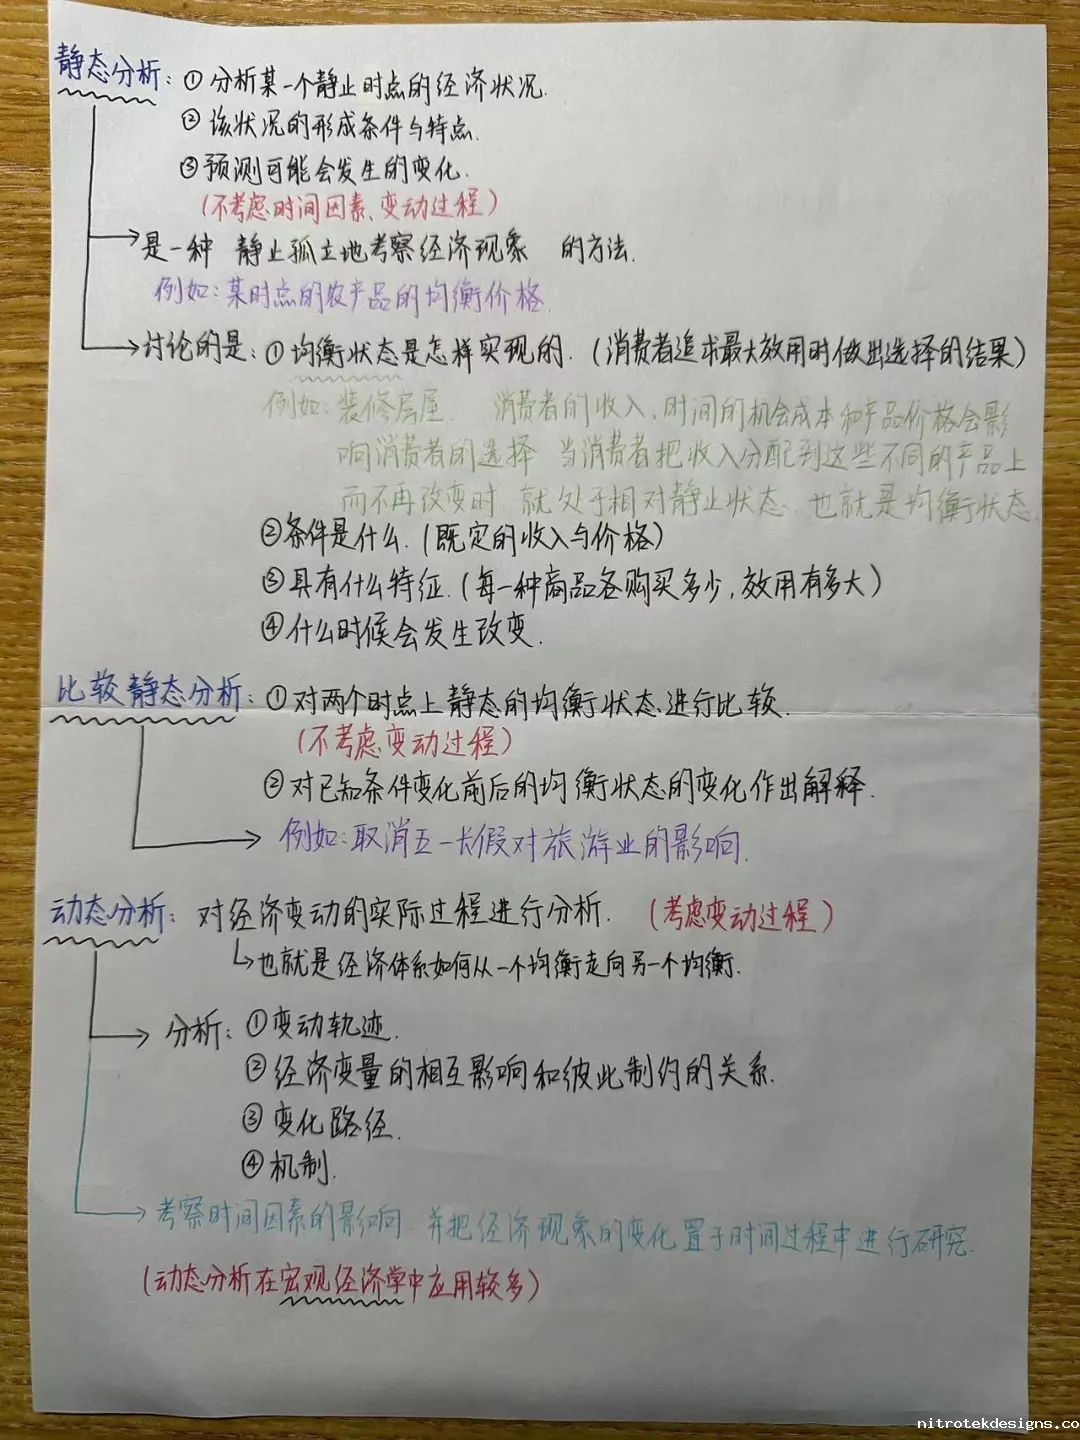 静态分析：①分析某一个静止时点的经济状况.
②该状况的形成条件与特点.
③预测可能会发生的变化.
（不考虑时间因素、变动过程）
是一种 静止孤立地考察经济现象 的方法.
例如：某时点的农产品的均衡价格.
讨论的是：①均衡状态是怎样实现的.（消费者追求最大效用时做出选择的结果）
例如：装修房屋. 消费者的收入、时间的机会成本和产品价格会影
响消费者的选择 当消费者把收入分配到这些不同的产品上
而不再改变时 就处于相对静止状态. 也就是均衡状态.
②条件是什么.（既定的收入与价格）
③具有什么特征.（每一种商品各购买多少,效用有多大）
④什么时候会发生改变.
比较静态分析：①对两个时点上静态的均衡状态进行比较.
（不考虑变动过程）
②对已知条件变化前后的均衡状态的变化作出解释.
例如：取消五一长假对旅游业的影响.
动态分析：对经济变动的实际过程进行分析.（考虑变动过程）
也就是经济体系如何从一个均衡走向另一个均衡.
分析：①变动轨迹.
②经济变量的相互影响和彼此制约的关系.
③变化路径.
④机制.
考察时间因素的影响 并把经济现象的变化置于时间过程中进行研究.
（动态分析在宏观经济学中应用较多）
nitrotekdesigns.co